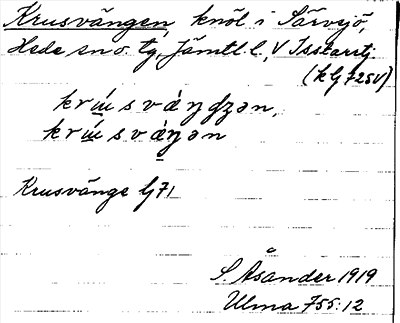 Krusvängen, knöl i Särvsjö,
Hede sn o. tg, Jämtl. l., V Isstarrtj.
(kbg 725V)
krúsváŋdʒən,
krúsváŋən
Krusvänge bg 71
S. Åsander 1919
Ulma 755:12